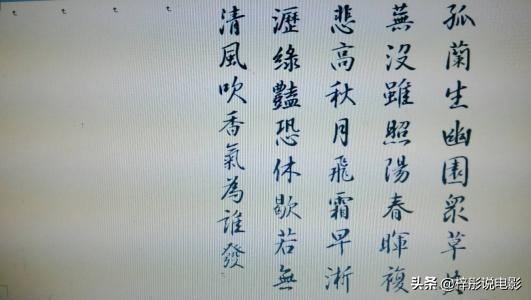 孤蘭生幽園衆草共
蕪沒雖照陽春暉複
悲高秋月飛霜早淅
瀝綠豔恐休歇若無
清風吹香氣為誰發
头条 @梓彤说电影